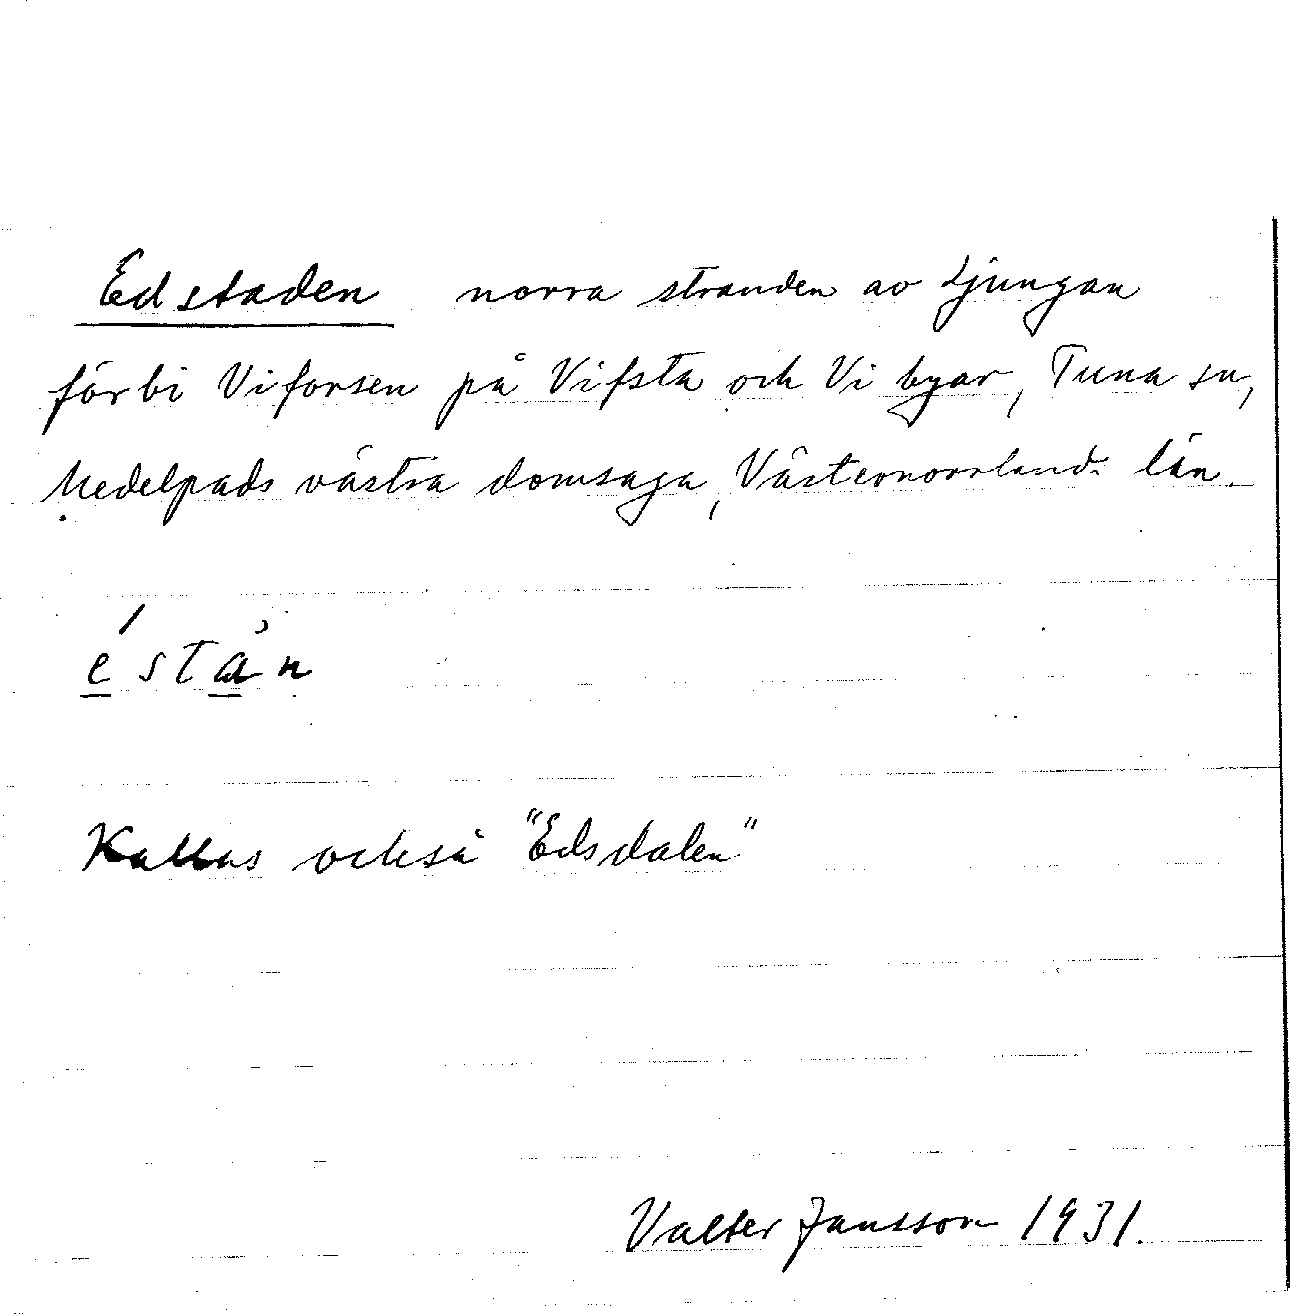 Edstaden norra stranden av Ljungan
förbi Viforsen på Vifsta och Vi byar, Tuna sn,
Medelpads västra domsaga, Västernorrlands län.
éstàn
Kallas också "Edsdalen"
Valter Jansson 1931.